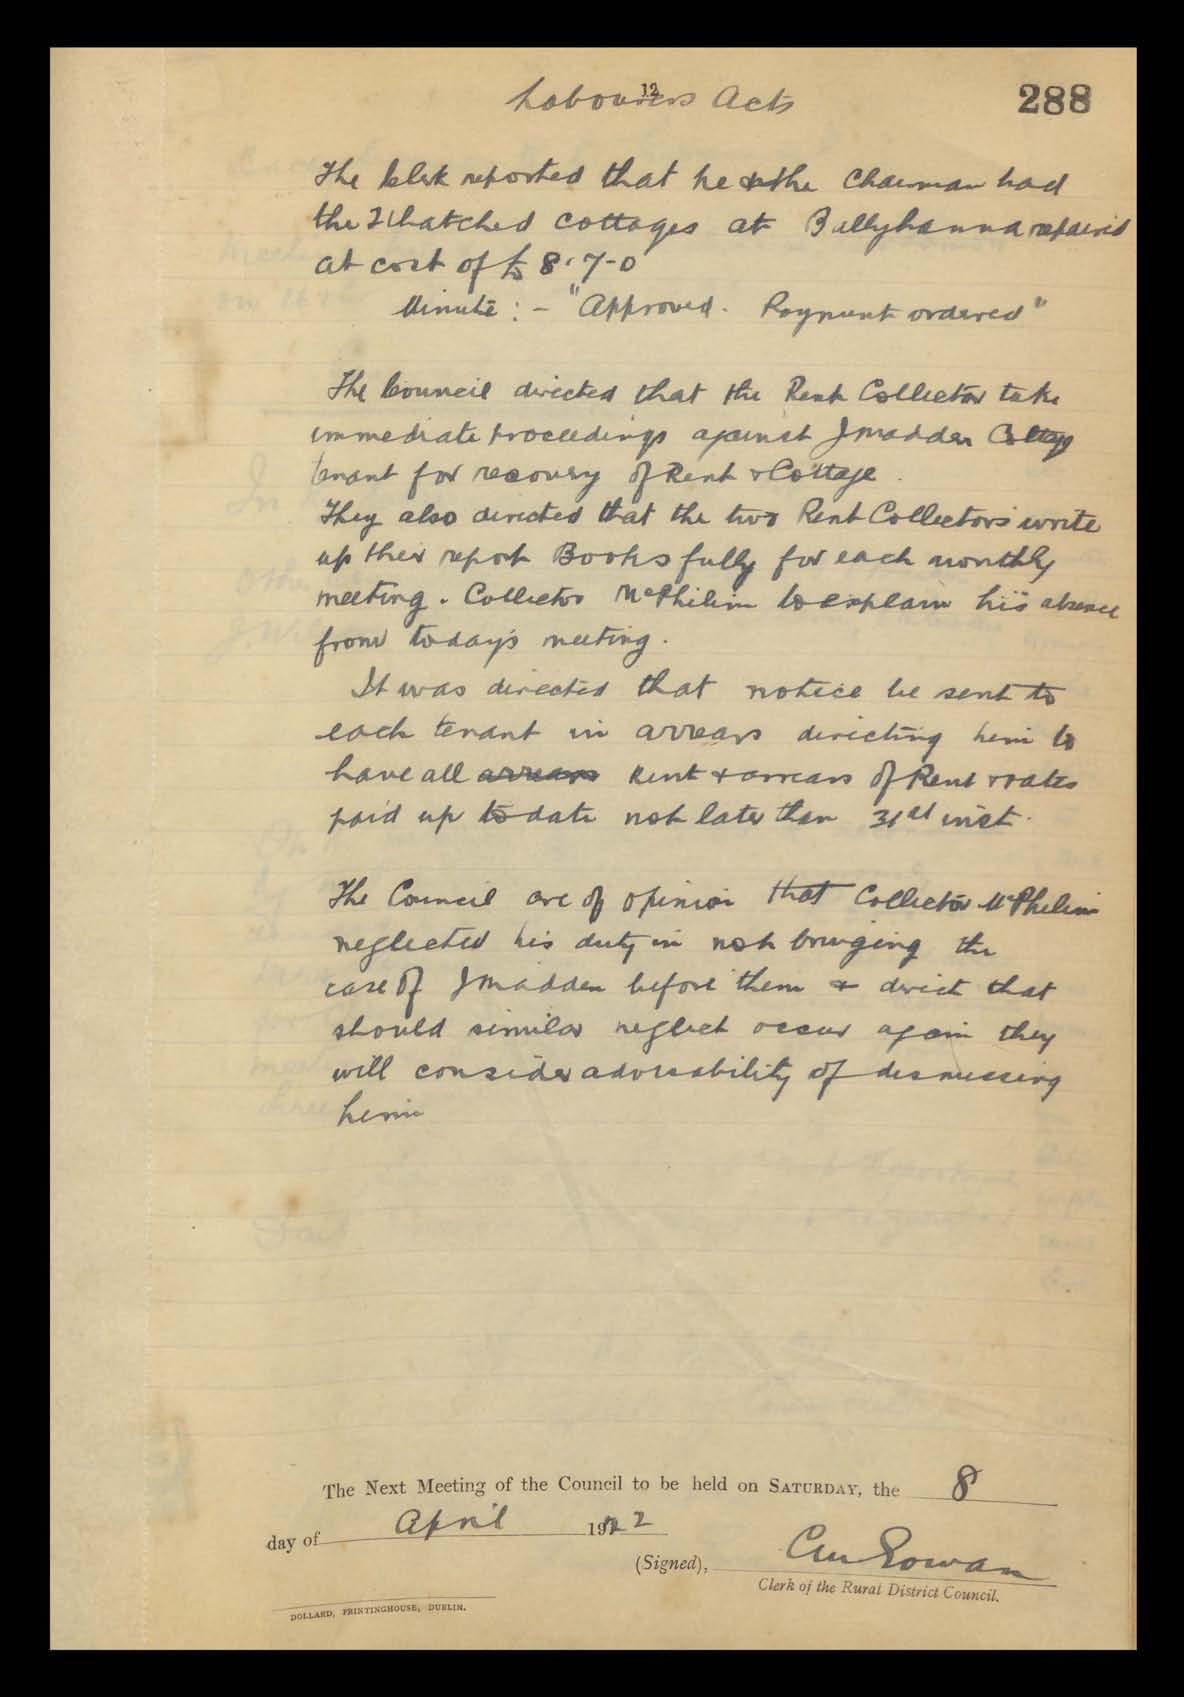 Labourers Acts
12
288
The Clerk reported that he & the Chairman had
the 2 thatched cottages at Ballyhanna repaired
at cost of £8.7-0
Minute :- "Approved. Payment ordered"
The Council directed that the Rent Collector take
immediate proceedings against J Madden Cottage
tenant for recovery of Rent & Cottage.
They also directed that the two Rent Collectors write
up their report Books fully for each monthly
meeting. Collector McPhilim to explain his absence
from today's meeting.
It was directed that notice be sent to
each tenant in arrears directing him to
have all arrears Rent & arrears of Rent & rates
paid up to date not later than 31st inst.
The Council are of opinion that Collector McPhilim
neglected his duty in not bringing the
case of J Madden before them & direct that
should similar neglect occur again they
will consider advisability of dismissing
him
The Next Meeting of the Council to be held on SATURDAY, the 8
day of April 1922
(Signed),
Clerk of the Rural District Council.
DOLLARD, PRINTINGHOUSE, DUBLIN.